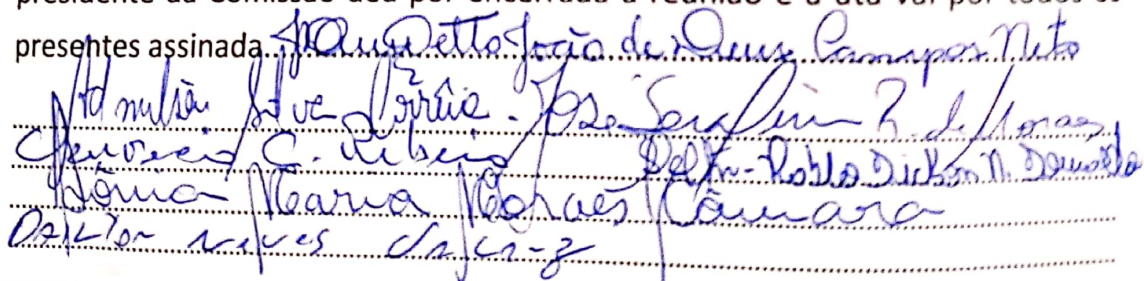 presidente da Comissão deu por encerrada a reunião e a ata vai por todos os
presentes assinada. João de Deus Campos Neto
Silva Corrêia. José Serafim R. de Moraes
C. Ribeiro Pablo Dickson N.
Sônia Maria Moraes Câmara
Neves da Cruz